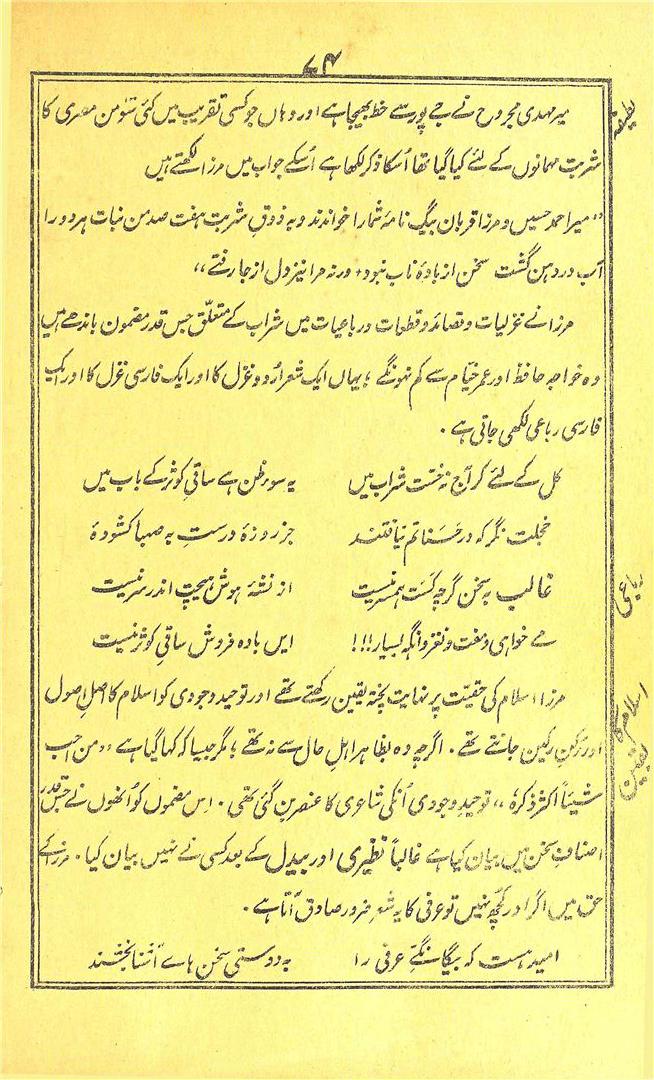 ۷۴
لطیفہ
میر مہدی مجروح نے جے پور سے خط بھیجا ہے اور وہاں جو کسی تقریب میں کئی سَومن مصری کا
شربت مہمانوں کے لئے کیا گیا تھا اُسکا ذکر لکھا ہے اُسکے جواب میں مرزا لکھتے ہیں
”میر احمد حسین و مرزا قربان بیگ نامۂ شمارا خواندند و بہ ذوقِ شربت ہفت صدمن نبات ہر دو را
آب در دہن گشت سخن از بادۂ ناب نبود، ورنہ مرا نیز دل از جا رفتے“
مرزا نے غزلیات و قصائد و قطعات و رباعیات میں شراب کے متعلّق جس قدر مضمون باندھے ہیں
وہ خواجہ حافظ اور عمر خیّام سے کم نہونگے ؛ یہاں ایک شعر اُردو غزل کا اور ایک فارسی غزل کا اور ایک
فارسی رباعی لکھی جاتی ہے ۔
کل کے لئے کر آج نہ خسّت شراب میں یہ سوءِ ظن ہے ساقیِ کوثر کے باب میں
خجلت نگر کہ در حَسَناتم نیافتند جز روزۂ درست بہ صہبا کشودۂ
رباعی
غالب بہ سخن گرچہ کَسَت ہمسر نیست از نشۂ ہوش ہیچت اندر سر نیست
مے خواہی و مفت و نغز وانگہ بسیار!!! ایں بادہ فروش ساقیِ کوثر نیست
اسلام کا یقین
مرزا اسلام کی حقیّت پر نہایت پختہ یقین رکھتے تھے اور توحید وجودی کو اسلام کا اصلِ اصول
اور رُکنِ رکین جانتے تھے ۔ اگرچہ وہ بظاہر اہلِ حال سے نہ تھے ؛ مگر جیسا کہ کہا گیا ہے ”من احب
شیئاً اکثر ذکرہٗ“ توحیدِ وجودی اُنکی شاعری کا عنصر بن گئی تھی ۔ اِس مضموں کو اُنھوں نے جس قدر
اصنافِ سخن میں بیان کیا ہے غالباً نظیری اور بیدل کے بعد کسی نے نہیں بیان کیا ۔ مرزا کے
حق میں اگر اور کچھ نہیں تو عرفی کا یہ شعر ضرور صادق آتا ہے ۔
امید ہست کہ بیگانگیِ عرفی را بہ دوستیِ سخن ہاے آشنا بخشند